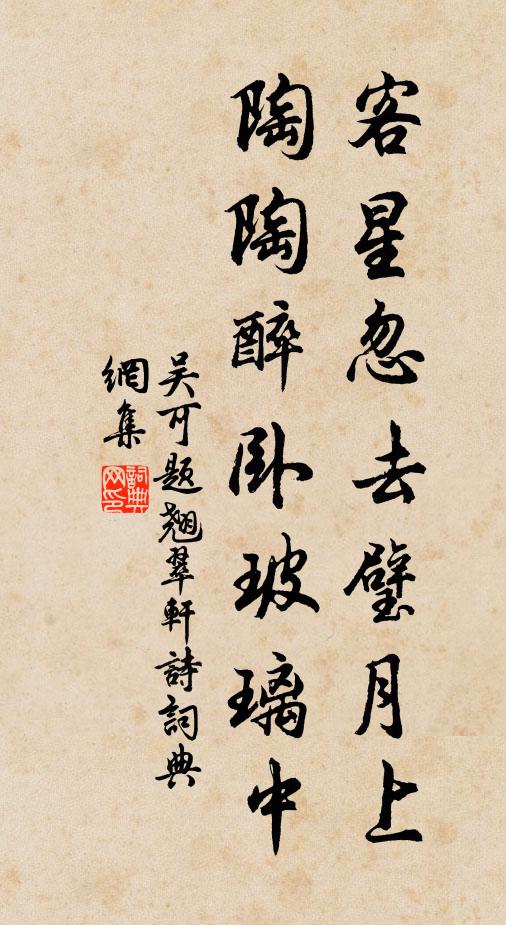 客星忽去璧月上
陶陶醉卧玻璃中
吴可题翘翠軒詩詞典
網集
詞典
网印